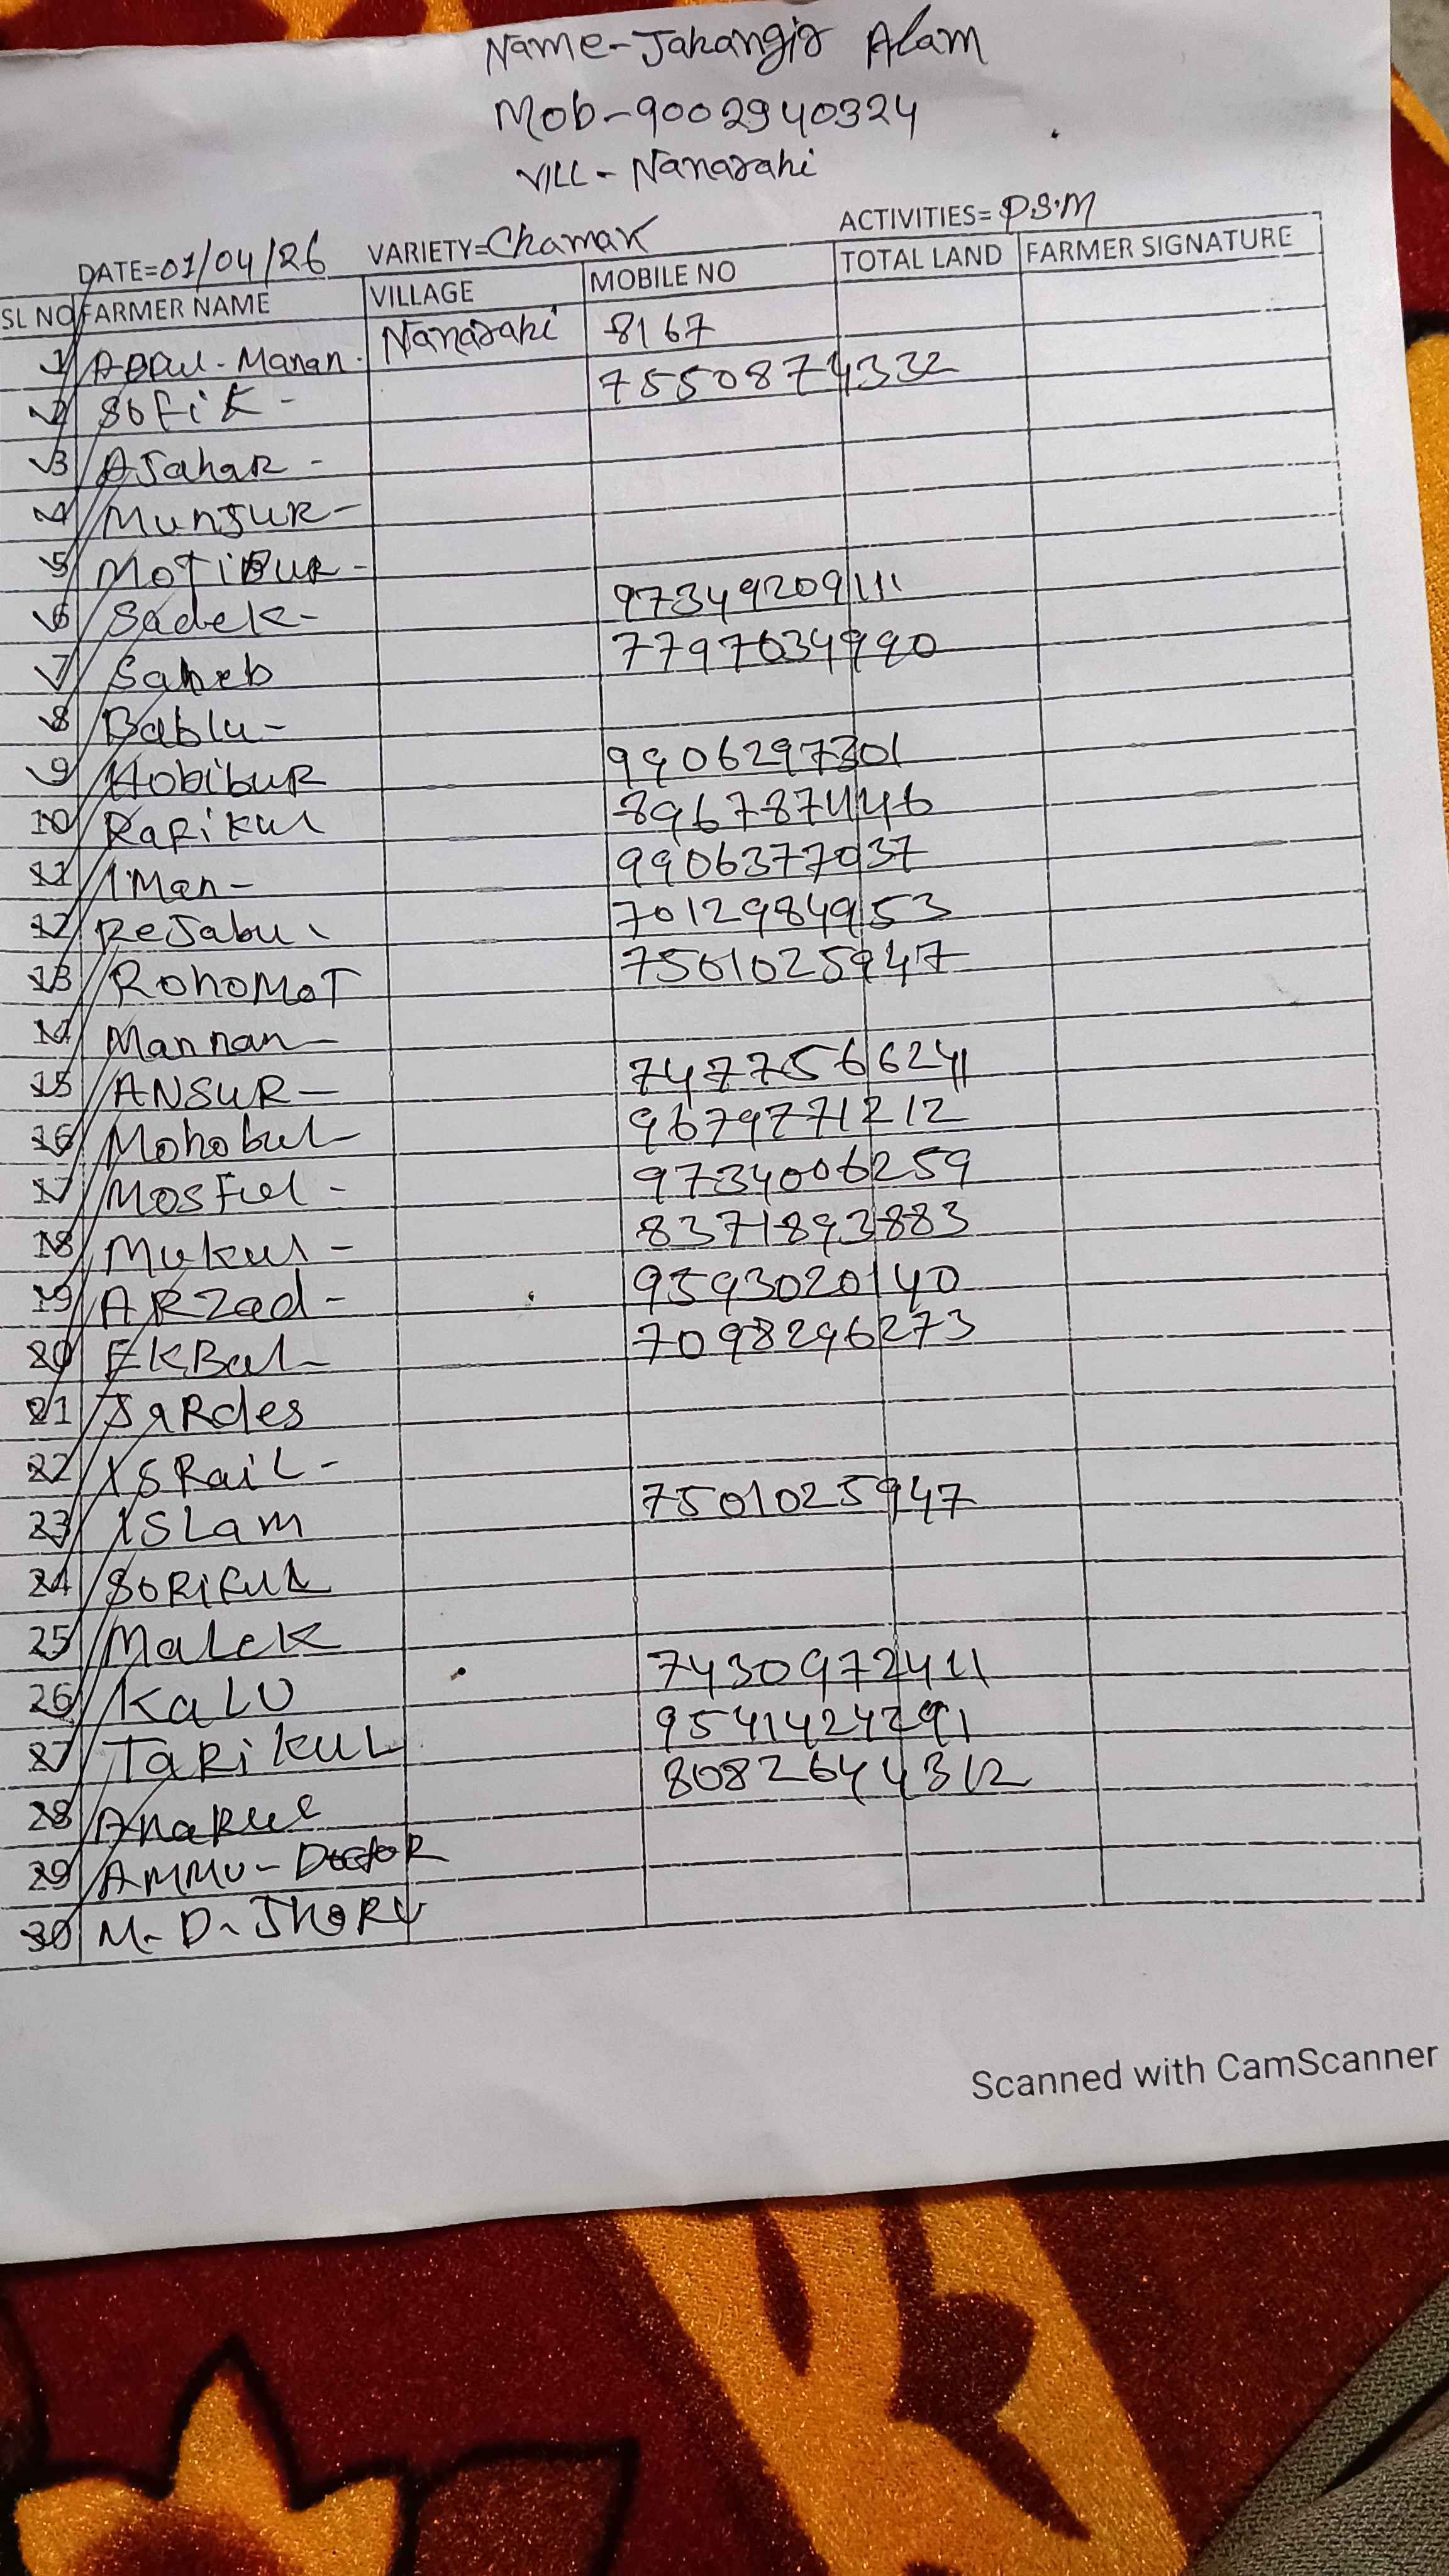 Name-Jahangir Alam
Mob-9002940324
VILL- Nanarahi
DATE=01/04/26 VARIETY=Chamak ACTIVITIES= P.S.M
SL NO FARMER NAME VILLAGE MOBILE NO TOTAL LAND FARMER SIGNATURE
1 ABDul-Manan. Nanarahi 8167
2 Sofik- 7550874332
3 AJahar-
4 Munjur-
5 MoTiBur-
6 Sadek- 9734920911
7 Saheb 7797634990
8 Bablu-
9 Hobibur 9906297301
10 Rafikul 8967874446
11 iMan- 9906377037
12 ReJabu 7012984953
13 RohoMoT 7501025947
14 Mannan-
15 ANSUR- 7477566241
16 Mohobul- 9679771212
17 MosFul- 9734006259
18 Mukul- 8371893883
19 ARZad- 9593020140
20 EkBal- 7098296273
21 JaRdes
22 ISRaiL-
23 ISLam 7501025947
24 SoRiful
25 Malek
26 KaLU 7430972411
27 TaRikuL 9541424291
28 AnaRul 8082644312
29 AMMU-DoctoR
30 M-D-
Scanned with CamScanner